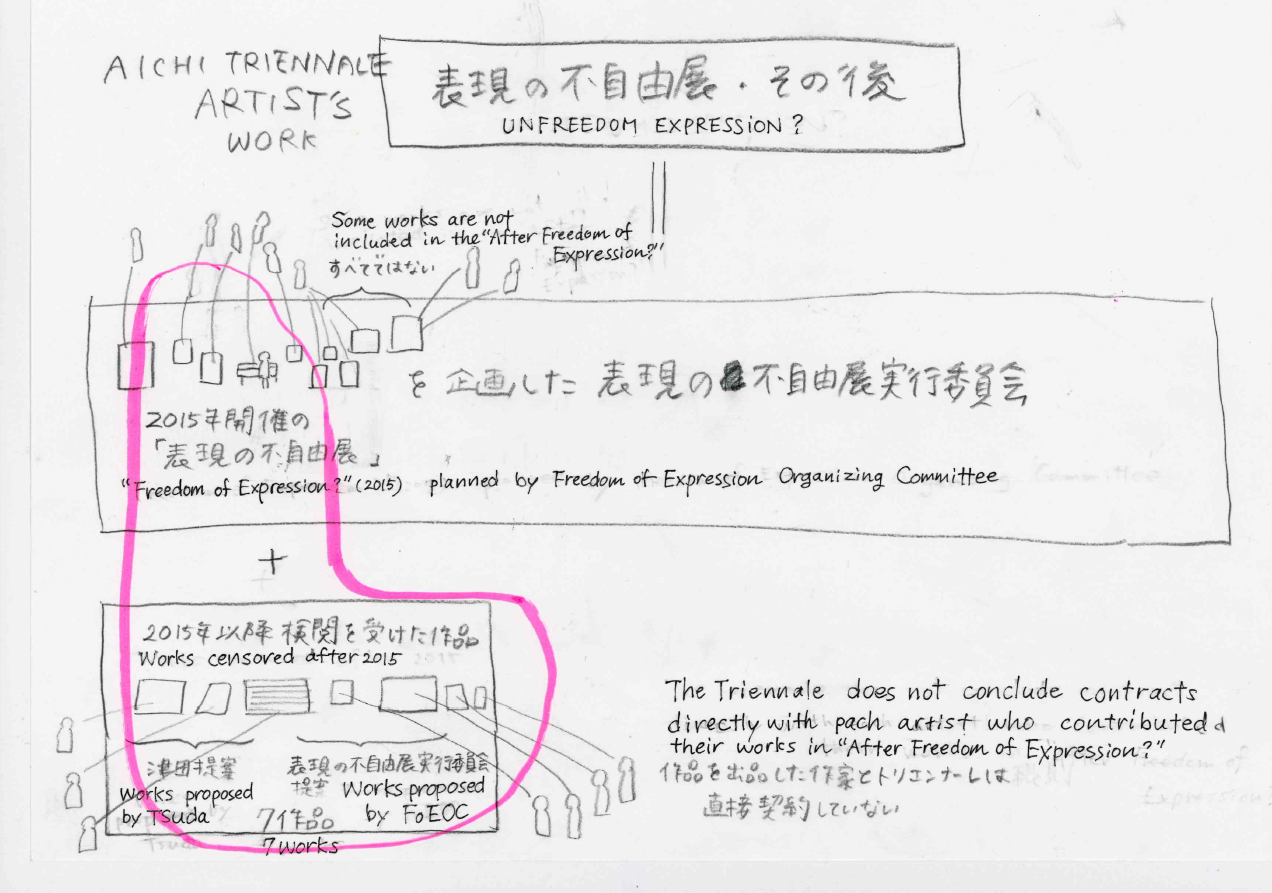 AICHI TRIENNALE
ARTIST'S
WORK
表現の不自由展・その後
UNFREEDOM EXPRESSION?
Some works are not
included in the "After Freedom of
Expression?"
すべてではない
を企画した 表現の不自由展実行委員会
2015年開催の
「表現の不自由展」
"Freedom of Expression?" (2015) planned by Freedom of Expression Organizing Committee
+
2015年以降 検閲を受けた作品
Works censored after 2015
津田提案
Works proposed
by TSuda
表現の不自由展実行委員会
提案
Works proposed
by FoEOC
7作品
7 works
The Triennale does not conclude contracts
directly with pach artist who contributed
their works in "After Freedom of Expression?"
作品を出品した作家とトリエンナーレは
直接契約していない